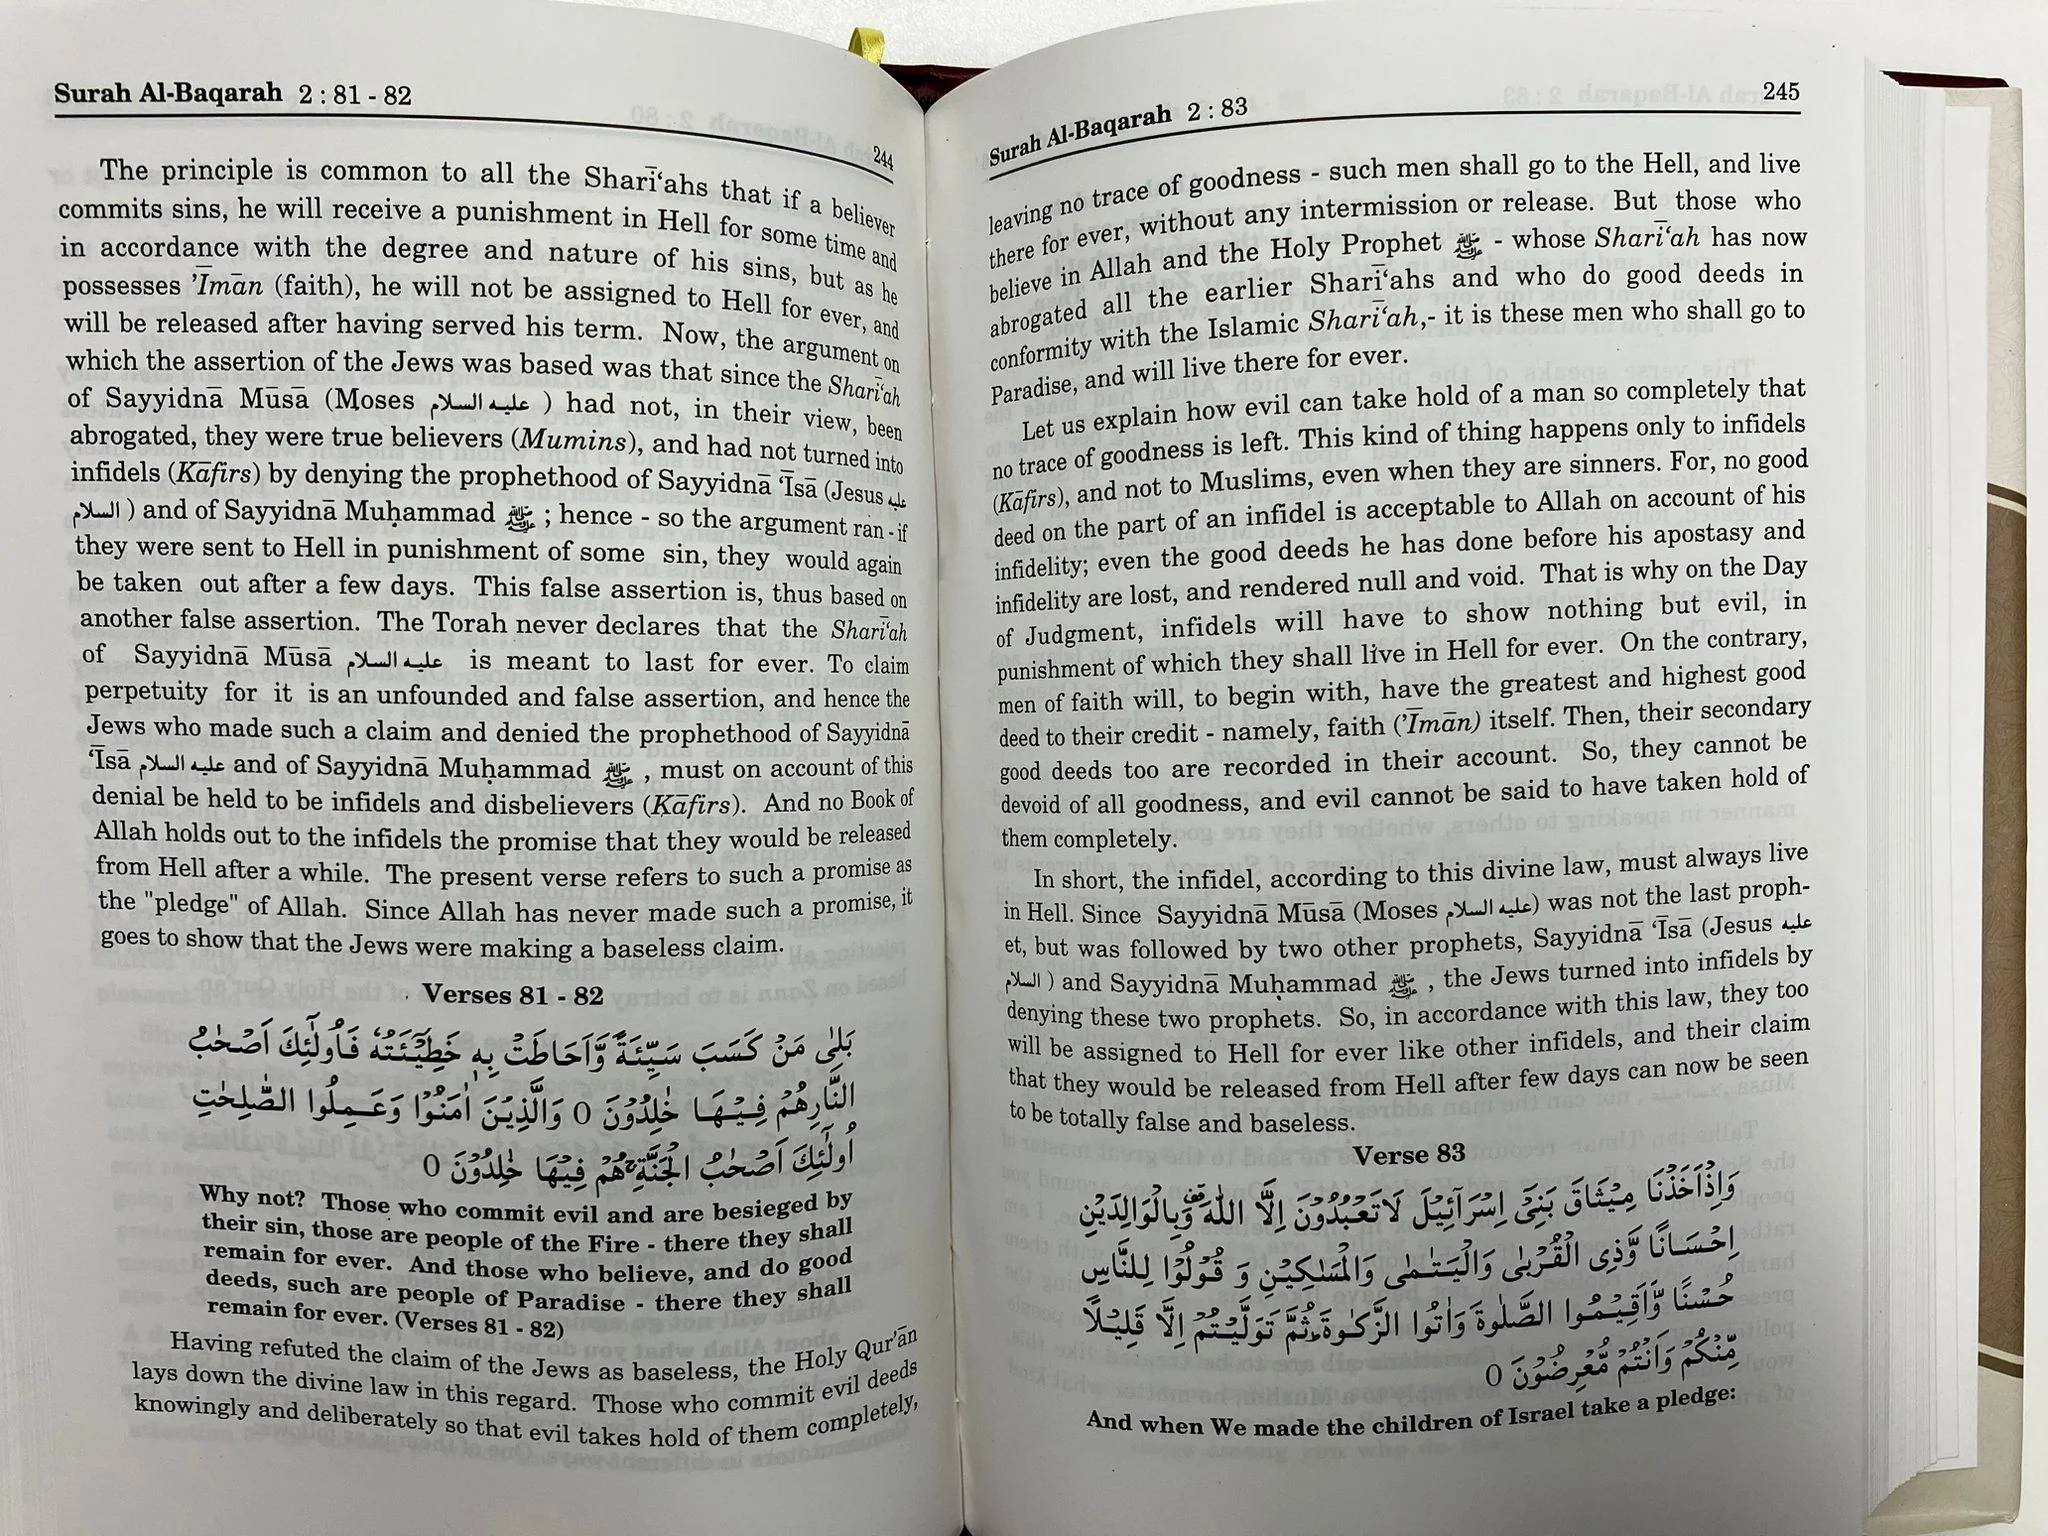 Surah Al-Baqarah 2 : 81 - 82
244
The principle is common to all the Sharī‘ahs that if a believer
commits sins, he will receive a punishment in Hell for some time and
in accordance with the degree and nature of his sins, but as he
possesses ’Īmān (faith), he will not be assigned to Hell for ever, and
will be released after having served his term. Now, the argument on
which the assertion of the Jews was based was that since the Sharī‘ah
of Sayyidnā Mūsā (Moses عليه السلام ) had not, in their view, been
abrogated, they were true believers (Mumins), and had not turned into
infidels (Kāfirs) by denying the prophethood of Sayyidnā ‘Īsā (Jesus عليه
السلام ) and of Sayyidnā Muḥammad ﷺ ; hence - so the argument ran - if
they were sent to Hell in punishment of some sin, they would again
be taken out after a few days. This false assertion is, thus based on
another false assertion. The Torah never declares that the Sharī‘ah
of Sayyidnā Mūsā عليه السلام is meant to last for ever. To claim
perpetuity for it is an unfounded and false assertion, and hence the
Jews who made such a claim and denied the prophethood of Sayyidnā
‘Īsā عليه السلام and of Sayyidnā Muḥammad ﷺ , must on account of this
denial be held to be infidels and disbelievers (Kāfirs). And no Book of
Allah holds out to the infidels the promise that they would be released
from Hell after a while. The present verse refers to such a promise as
the "pledge" of Allah. Since Allah has never made such a promise, it
goes to show that the Jews were making a baseless claim.
Verses 81 - 82
بَلٰى مَنْ كَسَبَ سَيِّئَةً وَّاَحَاطَتْ بِهٖ خَطِيْٓئَتُهٗ فَاُولٰٓئِكَ اَصْحٰبُ
النَّارِهُمْ فِيْهَا خٰلِدُوْنَ O وَالَّذِيْنَ اٰمَنُوْا وَعَمِلُوا الصّٰلِحٰتِ
اُولٰٓئِكَ اَصْحٰبُ الْجَنَّةِ ۚ هُمْ فِيْهَا خٰلِدُوْنَ O
Why not? Those who commit evil and are besieged by
their sin, those are people of the Fire - there they shall
remain for ever. And those who believe, and do good
deeds, such are people of Paradise - there they shall
remain for ever. (Verses 81 - 82)
Having refuted the claim of the Jews as baseless, the Holy Qur’ān
lays down the divine law in this regard. Those who commit evil deeds
knowingly and deliberately so that evil takes hold of them completely,
Surah Al-Baqarah 2 : 83
245
leaving no trace of goodness - such men shall go to the Hell, and live
there for ever, without any intermission or release. But those who
believe in Allah and the Holy Prophet ﷺ - whose Sharī‘ah has now
abrogated all the earlier Sharī‘ahs and who do good deeds in
conformity with the Islamic Sharī‘ah,- it is these men who shall go to
Paradise, and will live there for ever.
Let us explain how evil can take hold of a man so completely that
no trace of goodness is left. This kind of thing happens only to infidels
(Kāfirs), and not to Muslims, even when they are sinners. For, no good
deed on the part of an infidel is acceptable to Allah on account of his
infidelity; even the good deeds he has done before his apostasy and
infidelity are lost, and rendered null and void. That is why on the Day
of Judgment, infidels will have to show nothing but evil, in
punishment of which they shall live in Hell for ever. On the contrary,
men of faith will, to begin with, have the greatest and highest good
deed to their credit - namely, faith (’Īmān) itself. Then, their secondary
good deeds too are recorded in their account. So, they cannot be
devoid of all goodness, and evil cannot be said to have taken hold of
them completely.
In short, the infidel, according to this divine law, must always live
in Hell. Since Sayyidnā Mūsā (Moses عليه السلام) was not the last proph-
et, but was followed by two other prophets, Sayyidnā ‘Īsā (Jesus عليه
السلام ) and Sayyidnā Muḥammad ﷺ , the Jews turned into infidels by
denying these two prophets. So, in accordance with this law, they too
will be assigned to Hell for ever like other infidels, and their claim
that they would be released from Hell after few days can now be seen
to be totally false and baseless.
Verse 83
وَاِذْاَخَذْنَا مِيْثَاقَ بَنِىْٓ اِسْرَآئِيْلَ لَاتَعْبُدُوْنَ اِلَّا اللّٰهَ وَبِالْوَالِدَيْنِ
اِحْسَانًا وَّذِى الْقُرْبٰى وَالْيَتٰمٰى وَالْمَسٰكِيْنِ وَ قُوْلُوْا لِلنَّاسِ
حُسْنًا وَّاَقِيْمُوا الصَّلٰوةَ وَاٰتُوا الزَّكٰوةَ ؕ ثُمَّ تَوَلَّيْتُمْ اِلَّا قَلِيْلًا
مِّنْكُمْ وَاَنْتُمْ مُّعْرِضُوْنَ O
And when We made the children of Israel take a pledge: